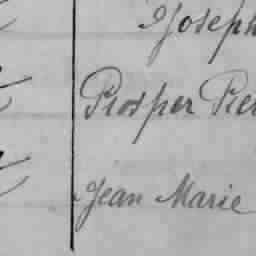 Joseph
Prosper Pier
Jean Marie